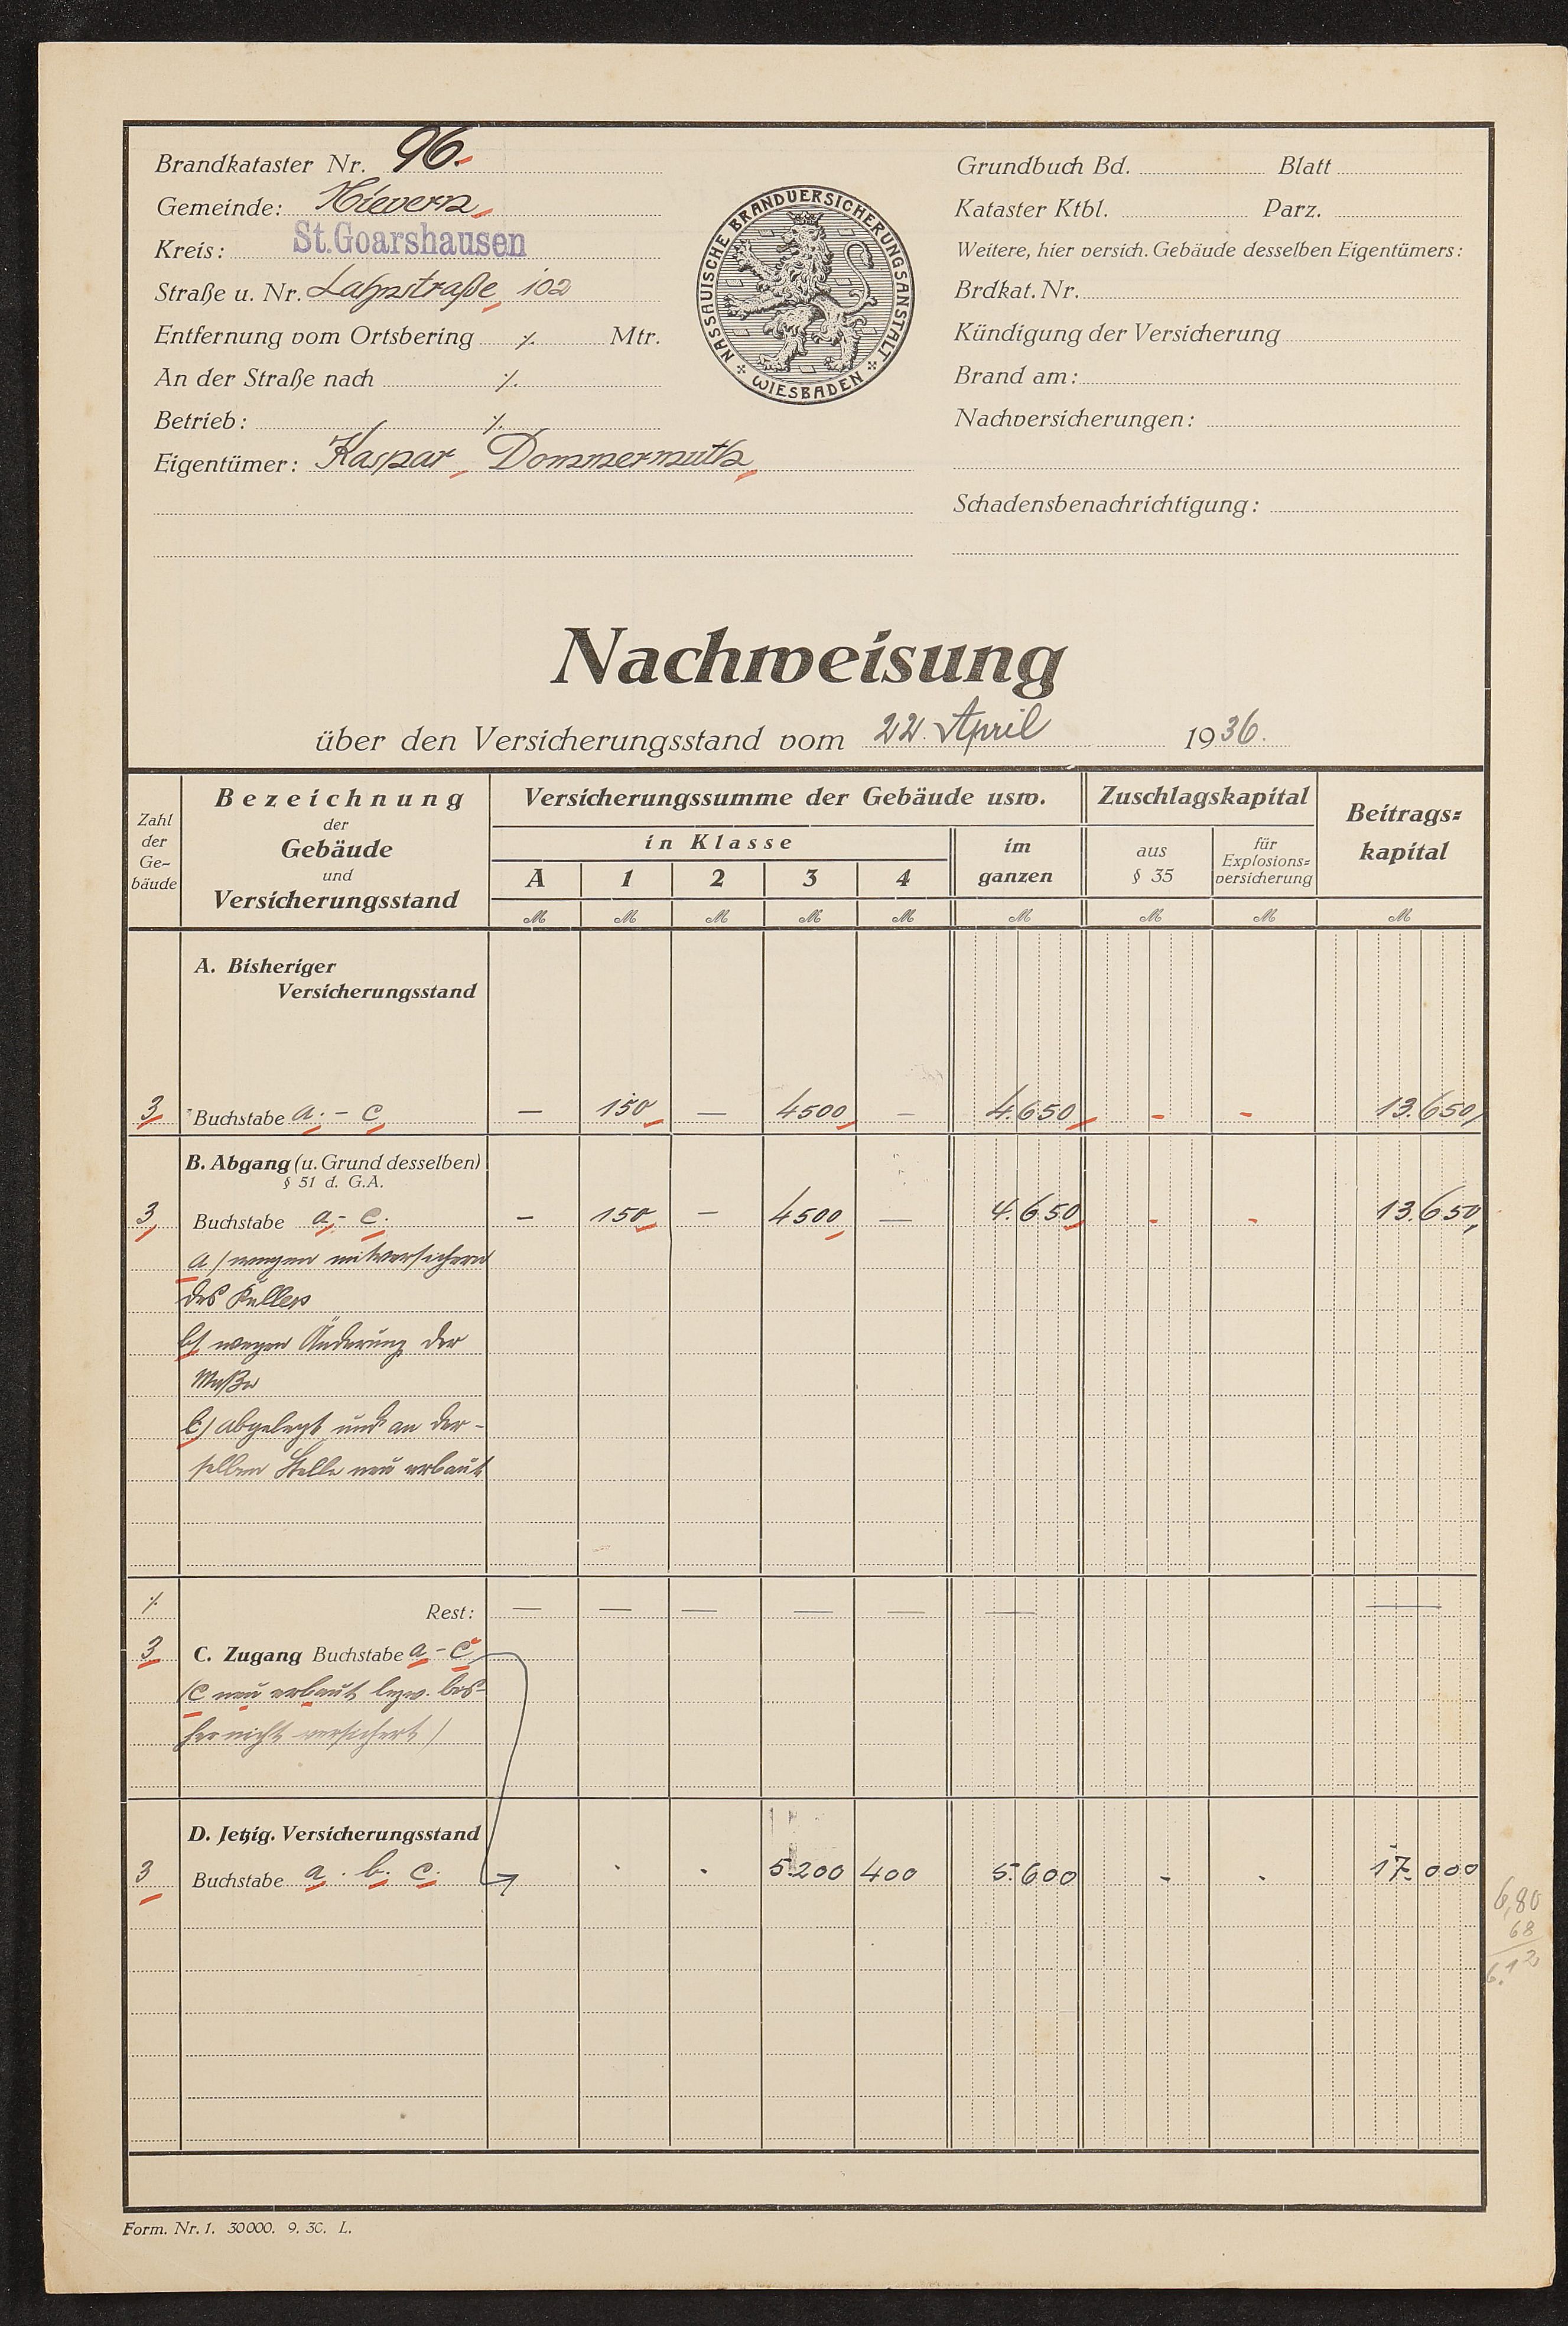 Brandkataster Nr. 96.
Gemeinde: Nievern
Kreis: St. Goarshausen
Straße u. Nr. Lahnstraße 102
Entfernung vom Ortsbering ./. Mtr.
An der Straße nach ./.
Betrieb: ./.
Eigentümer: Kaspar Dommermuth
NASSAUISCHE BRANDVERSICHERUNGSANSTALT
WIESBADEN
Grundbuch Bd. Blatt
Kataster Ktbl. Parz.
Weitere, hier versich. Gebäude desselben Eigentümers:
Brdkat. Nr.
Kündigung der Versicherung
Brand am:
Nachversicherungen:
Schadensbenachrichtigung:
Nachweisung
über den Versicherungsstand vom 22. April 1936.
Zahl der Ge-bäude
Bezeichnung
der
Gebäude
und
Versicherungsstand
Versicherungssumme der Gebäude usw.
in Klasse
A 1 2 3 4
im ganzen
Zuschlagskapital
aus § 35
für Explosions=versicherung
Beitrags=kapital
M M M M M M M M M
A. Bisheriger
Versicherungsstand
3 Buchstabe a. - c — 150 — 4500 — 4.650 - - 13.650
B. Abgang (u. Grund desselben)
§ 51 d. G.A.
3 Buchstabe a - c. — 150 — 4500 — 4.650 - - 13.650
a) wegen mitversichern
des Kellers
b) wegen Änderung der
Maße
c) abgelegt und an der-
selben Stelle neu erbaut
./. Rest: — — — — — — —
3 C. Zugang Buchstabe a - c
(c neu erbaut bezw. bis-
her nicht versichert)
D. Jetzig. Versicherungsstand
3 Buchstabe a. b. c. . . 5.200 400 5.600 - - 17.000
6,80
68
6.12
Form. Nr. 1. 30000. 9. 30. L.